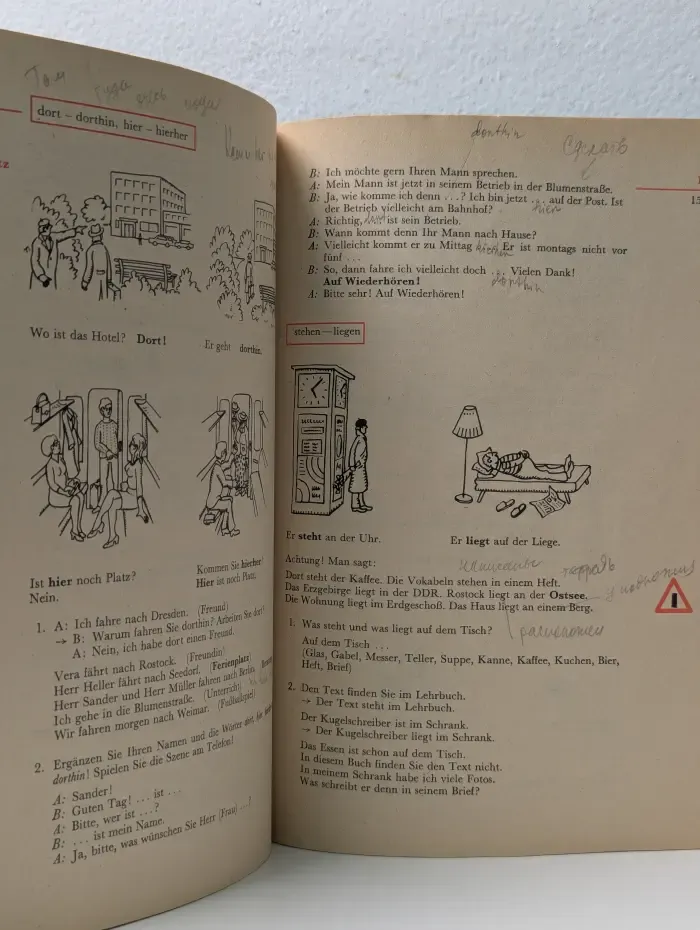 Там туда
здесь сюда
dort – dorthin, hier – hierher
Wo ist das Hotel? Dort!
Er geht dorthin.
Ist hier noch Platz?
Nein.
Kommen Sie hierher!
Hier ist noch Platz.
1. A: Ich fahre nach Dresden. (Freund)
→ B: Warum fahren Sie dorthin? Arbeiten Sie dort?
A: Nein, ich habe dort einen Freund.
Vera fährt nach Rostock. (Freundin)
Herr Heller fährt nach Seedorf. (Ferienplatz)
Herr Sander und Herr Müller fahren nach Berlin.
Ich gehe in die Blumenstraße. (Unterricht)
Wir fahren morgen nach Weimar. (Fußballspiel)
2. Ergänzen Sie Ihren Namen und die Wörter dort, hier
dorthin! Spielen Sie die Szene am Telefon!
A: Sander!
B: Guten Tag! ... ist ...
A: Bitte, wer ist ...?
B: ... ist mein Name.
A: Ja, bitte, was wünschen Sie Herr (Frau) ...!
dorthin
B: Ich möchte gern Ihren Mann sprechen.
A: Mein Mann ist jetzt in seinem Betrieb in der Blumenstraße.
B: Ja, wie komme ich denn ...? Ich bin jetzt ... auf der Post. Ist
der Betrieb vielleicht am Bahnhof? hier
A: Richtig, dort ist sein Betrieb.
B: Wann kommt denn Ihr Mann nach Hause?
A: Vielleicht kommt er zu Mittag hierher Er ist montags nicht vor
fünf ...
B: So, dann fahre ich vielleicht doch ... Vielen Dank!
Auf Wiederhören! dorthin
A: Bitte sehr! Auf Wiederhören!
stehen — liegen
Er steht an der Uhr.
Er liegt auf der Liege.
Achtung! Man sagt:
тетрадь
Dort steht der Kaffee. Die Vokabeln stehen in einem Heft.
Das Erzgebirge liegt in der DDR. Rostock liegt an der Ostsee.
Die Wohnung liegt im Erdgeschoß. Das Haus liegt an einem Berg.
1. Was steht und was liegt auf dem Tisch?
расположен
Auf dem Tisch ...
(Glas, Gabel, Messer, Teller, Suppe, Kanne, Kaffee, Kuchen, Bier,
Heft, Brief)
2. Den Text finden Sie im Lehrbuch.
→ Der Text steht im Lehrbuch.
Der Kugelschreiber ist im Schrank.
→ Der Kugelschreiber liegt im Schrank.
Das Essen ist schon auf dem Tisch.
In diesem Buch finden Sie den Text nicht.
In meinem Schrank habe ich viele Fotos.
Was schreibt er denn in seinem Brief?